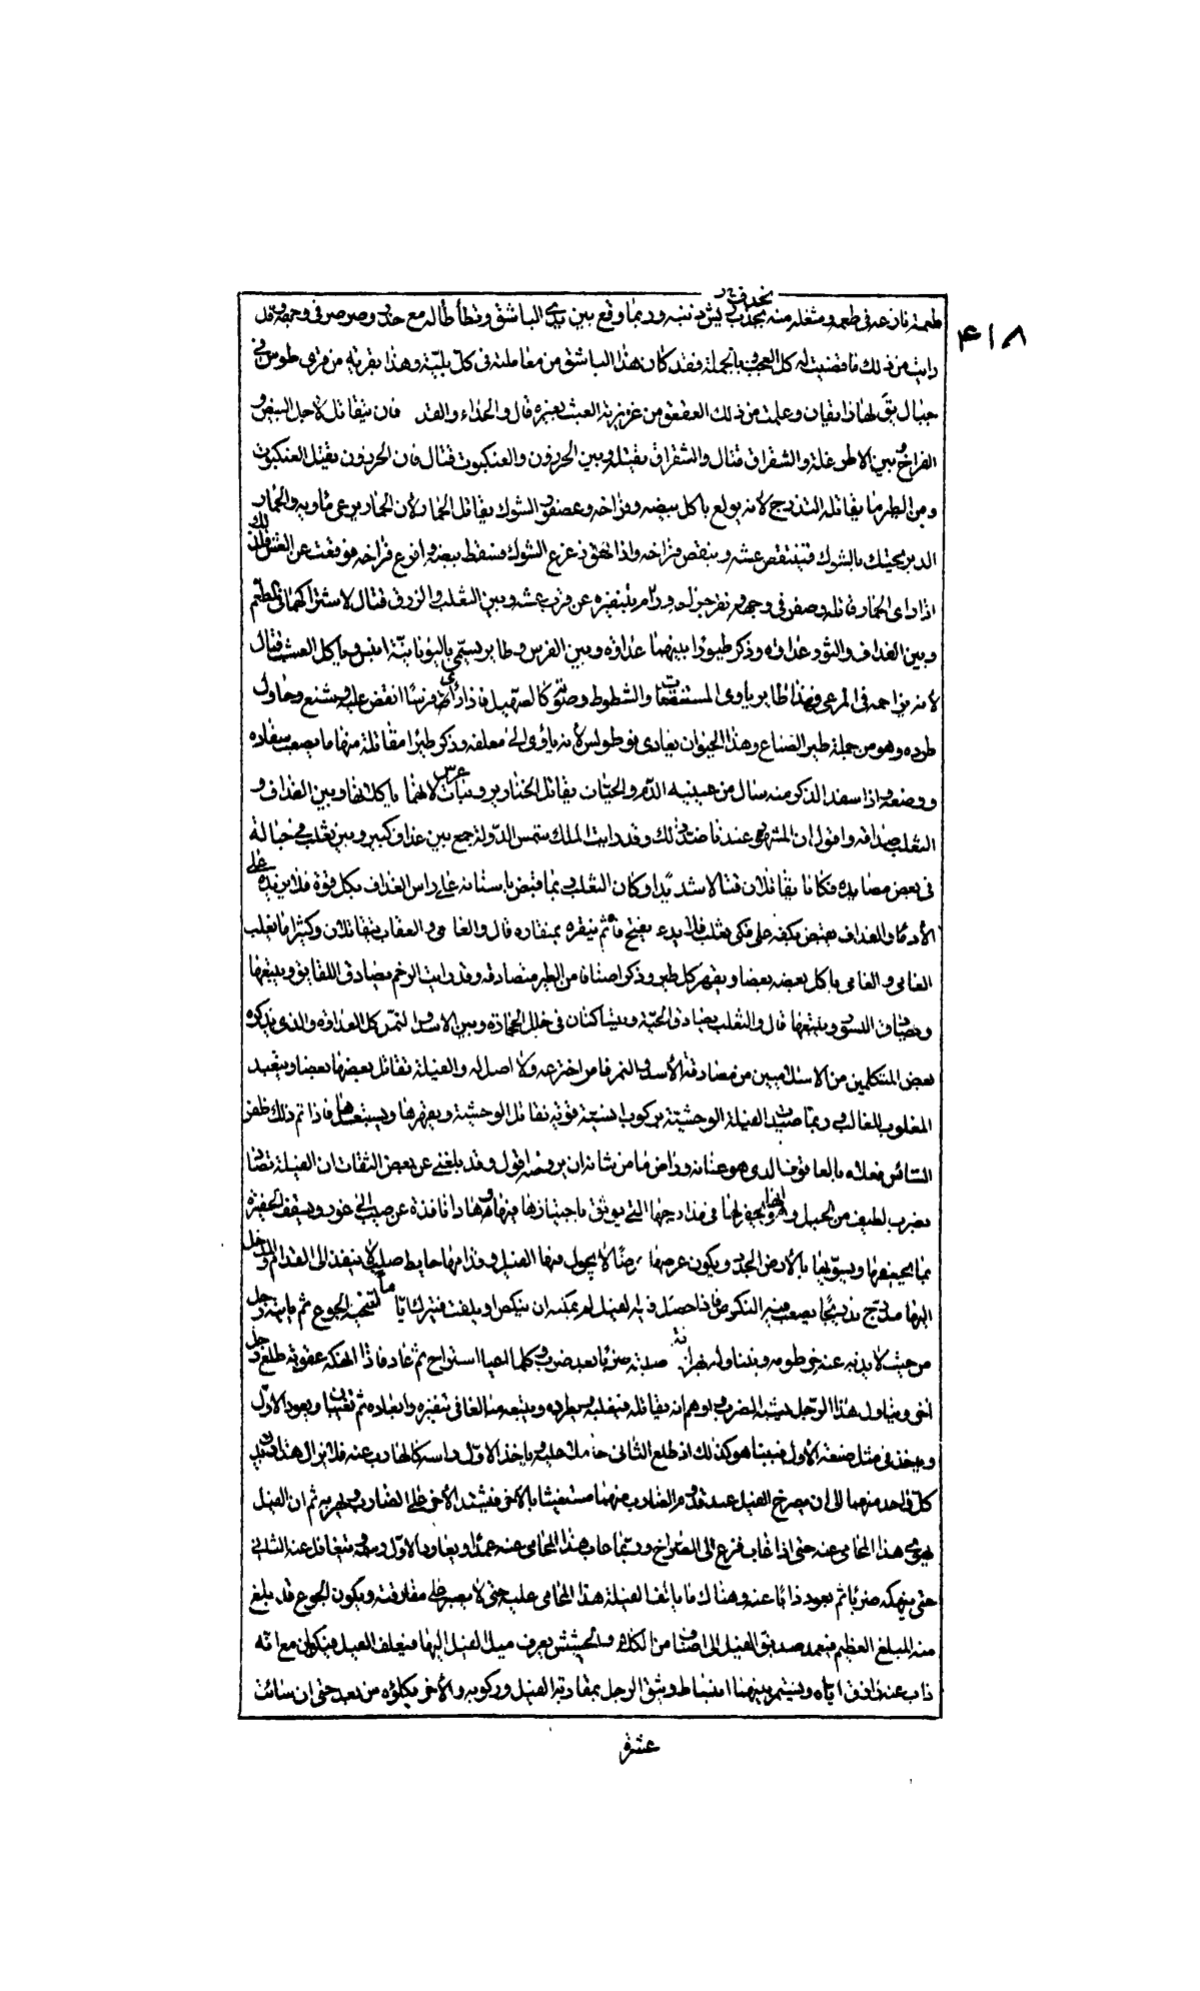 ۴۱۸
طعمة نازعه فى طعمه وشغله منه بجذب ريش ذنبه وربما وقع بين يدى الباشق وتطأطأ له مع حذر وصرصر فى وجهه وقد
رايت من ذلك ما قضيت له كل العجب بالجملة فقد كان هذا الباشق من معاملته فى كل بلية وهذا بقرية من قرى طوس فى
جبال يقال لها ذابقيان وعلمت من ذلك العقعق من غريزية العبث بغيره قال والحداء والغد فان يتقاتل لاجل البيض و
الفراخ وبين الاطرغلة والشقراق قتال والشقراق يقتله وبين الحرذون والعنكبوت قتال فان الحرذون يقتل العنكبوت
ومن الطير ما يقاتله التدرج لانه يولع باكل بيضه وفراخه وعصفور الشوك يقاتل الحمار لان الحمار يرعى ماويه والحمار
الدبر يحتك بالشوك فينتقص عشه وينقص فراخه واذا نهق زعزع الشوك فسقط بيضه او نزع فراخه فوقعت عن العش فلذلك
اذا راى الحمار قاتله وصفر فى وجهه ونقر حوله ورام بتنفيره عن قرب عشه وبين الثعلب والزرق قتال لاشتراكهما فى المطعم
وبين الغداف والثور عداوة وذكر طيورا بينهما عداوة وبين الفرس وطاير يسمى باليونانية انيس وياكل العشب قتال
لانه يزاحمه فى المرعى وهذا طاير ياوى المستنقعات والشطوط وصوته كالصهيل فاذا راى فرسا انقض عليه وشنع وحاول
طرده وهو من جملة طير الصناع وهذا الحيوان يعادى فوطولس لانه ياوى الى معلفه وذكر طيرا مقاتلة منها ما يصعب سفاده
ووضعه واذا سفد الذكر منه سال من عينيه الدم والحيات يقاتل الخنازير وبنات عرس لانهما ياكلانها وبين الغداف و
الثعلب صداقة واقول ان المشهور عندنا ضد ذلك وقد رايت الملك شمس الدولة جمع بين غداف كبير وبين ثعلب فى حبالة
فى بعض مصايده فكانا يقاتلان قتالا شديدا وكان الثعلب ربما قبض باسنانه على راس الغداف بكل قوة فلا يزيده على
الادماء والغداف يقبض بكفه على فكى ثعلب فلا يدعه يفتح فاه ثم ينقره بمنقاره قال والغامى والعقاب يتقاتلان وكثيرا ما يغلب
الغامى والغامى ياكل بعضه بعضا ويقهر كل طير وذكر اصنافا من الطير متصادقة وقد رايت الرخم يصادق اللقالق ويتبعها
ويصادق النسور ويتبعها قال والثعلب يصادق الحية ويتساكنان فى خلل الحجارة وبين الاسد والنمر كل العداوة والذى يذكره
بعض المتكلمين من الاسلاميين من مصادقة الاسد والنمر فامر اخترعه ولا اصل له والفيلة تقاتل بعضها بعضا ويتعبد
المغلوب للغالب وربما صيد الفيلة الوحشية بركوب انسية قوية تقاتل الوحشية ويقهرها ويستعبدها فاذا تم ذلك ظفر
السائس بفعلاته بالعاقوف الذى هو عنانه وراض ما من شانه ان يروضه اقول وقد بلغنى عن بعض الثقات ان الفيلة تصاد
بضرب لطيف من الحيل وهو ان يحفر لها فى مدارجها التى يوثق باجتيازها فيها وهدات نافذة عن صبب الى غور ويسقف الحفيرة
بما يخفيها ويسويها بالارض الجدد ويكون عرضها عرضا لا يحول فيها الفيل وقدامها حايط صلب لا ينفذ الى القدام والمدخل
اليها مدرج تدريجا يصعب منه النكوص فاذا حصل فيه الفيل لم يمكنه ان ينكص او يلتفت فيترك اياما لتنخبه الجوع ثم ياتيه رجل
من حيث لا يدنيه عنه خرطومه ويتناوله بهراوته صدبة ضربا بعد ضرب كلما اعيا استراح ثم عاد فاذا انهكه عقوبة طلع رجل
اخر ويناول هذا الرجل بشبه الضرب اوهم انه يقاتله فيغلبه بطرده ويتبعه مبالغا فى تنفيره وابعاده ثم يغيبا ويعود الاول
وياخذ فى مثل صنعه الاول فبينا هو كذلك اذ طلع الثانى حاملا عليه وياخذ الاول راسه كالهارب عنه فلا يزال هذا ديدن
كل واحد منهما الى ان يصرخ الفيل عند قدوم الضارب منهما مستغيثا بالاخر فيشتد الاخر على الضارب ويهربه ثم ان الفيل
يهوى هذا المحامى عنه حتى اذا غاب فزع الى الصراخ وربما غاب هذا المحامى عنه عمدا ويعاود الاول وهو يتغافل عنه الثانى
حتى ينهكه ضربا ثم يعود ذابا عنه وهناك ما يالف الفيلة هذا المحامى عليه حتى لا يصبر على مفارقته ويكون الجوع قد بلغ
منه المبلغ العظيم فيعمد صديق الفيل الى اصناف من الكلاء والحشيش يعرف ميل الفيل اليها فيعلف الفيل فيكون مع انه
ذاب عنه رازقا اياه ويستمر بينهما انبساط ويثق الرجل بمقاودة الفيل وركوبه والاخر يكلؤه من بعد حتى ان سائت
عشر